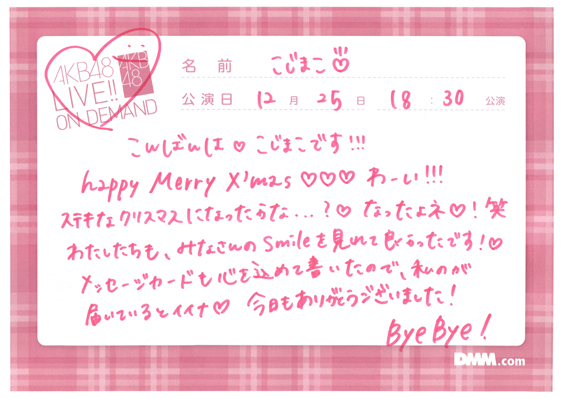 AKB48
LIVE!!
ON DEMAND
AKB
48
名前 こじまこ
公演日 12月25日 18:30 公演
こんばんは♡こじまこです!!!
happy Merry X'mas♡♡♡わーい!!!
ステキなクリスマスになったかな...?♡なったよネ♡!笑
わたしたちも、みなさんのSmileを見れて良かったです!♡
メッセージカードも心を込めて書いたので、私のが
届いているとイイナ♡ 今日もありがとうございました!
Bye Bye!
DMM.com